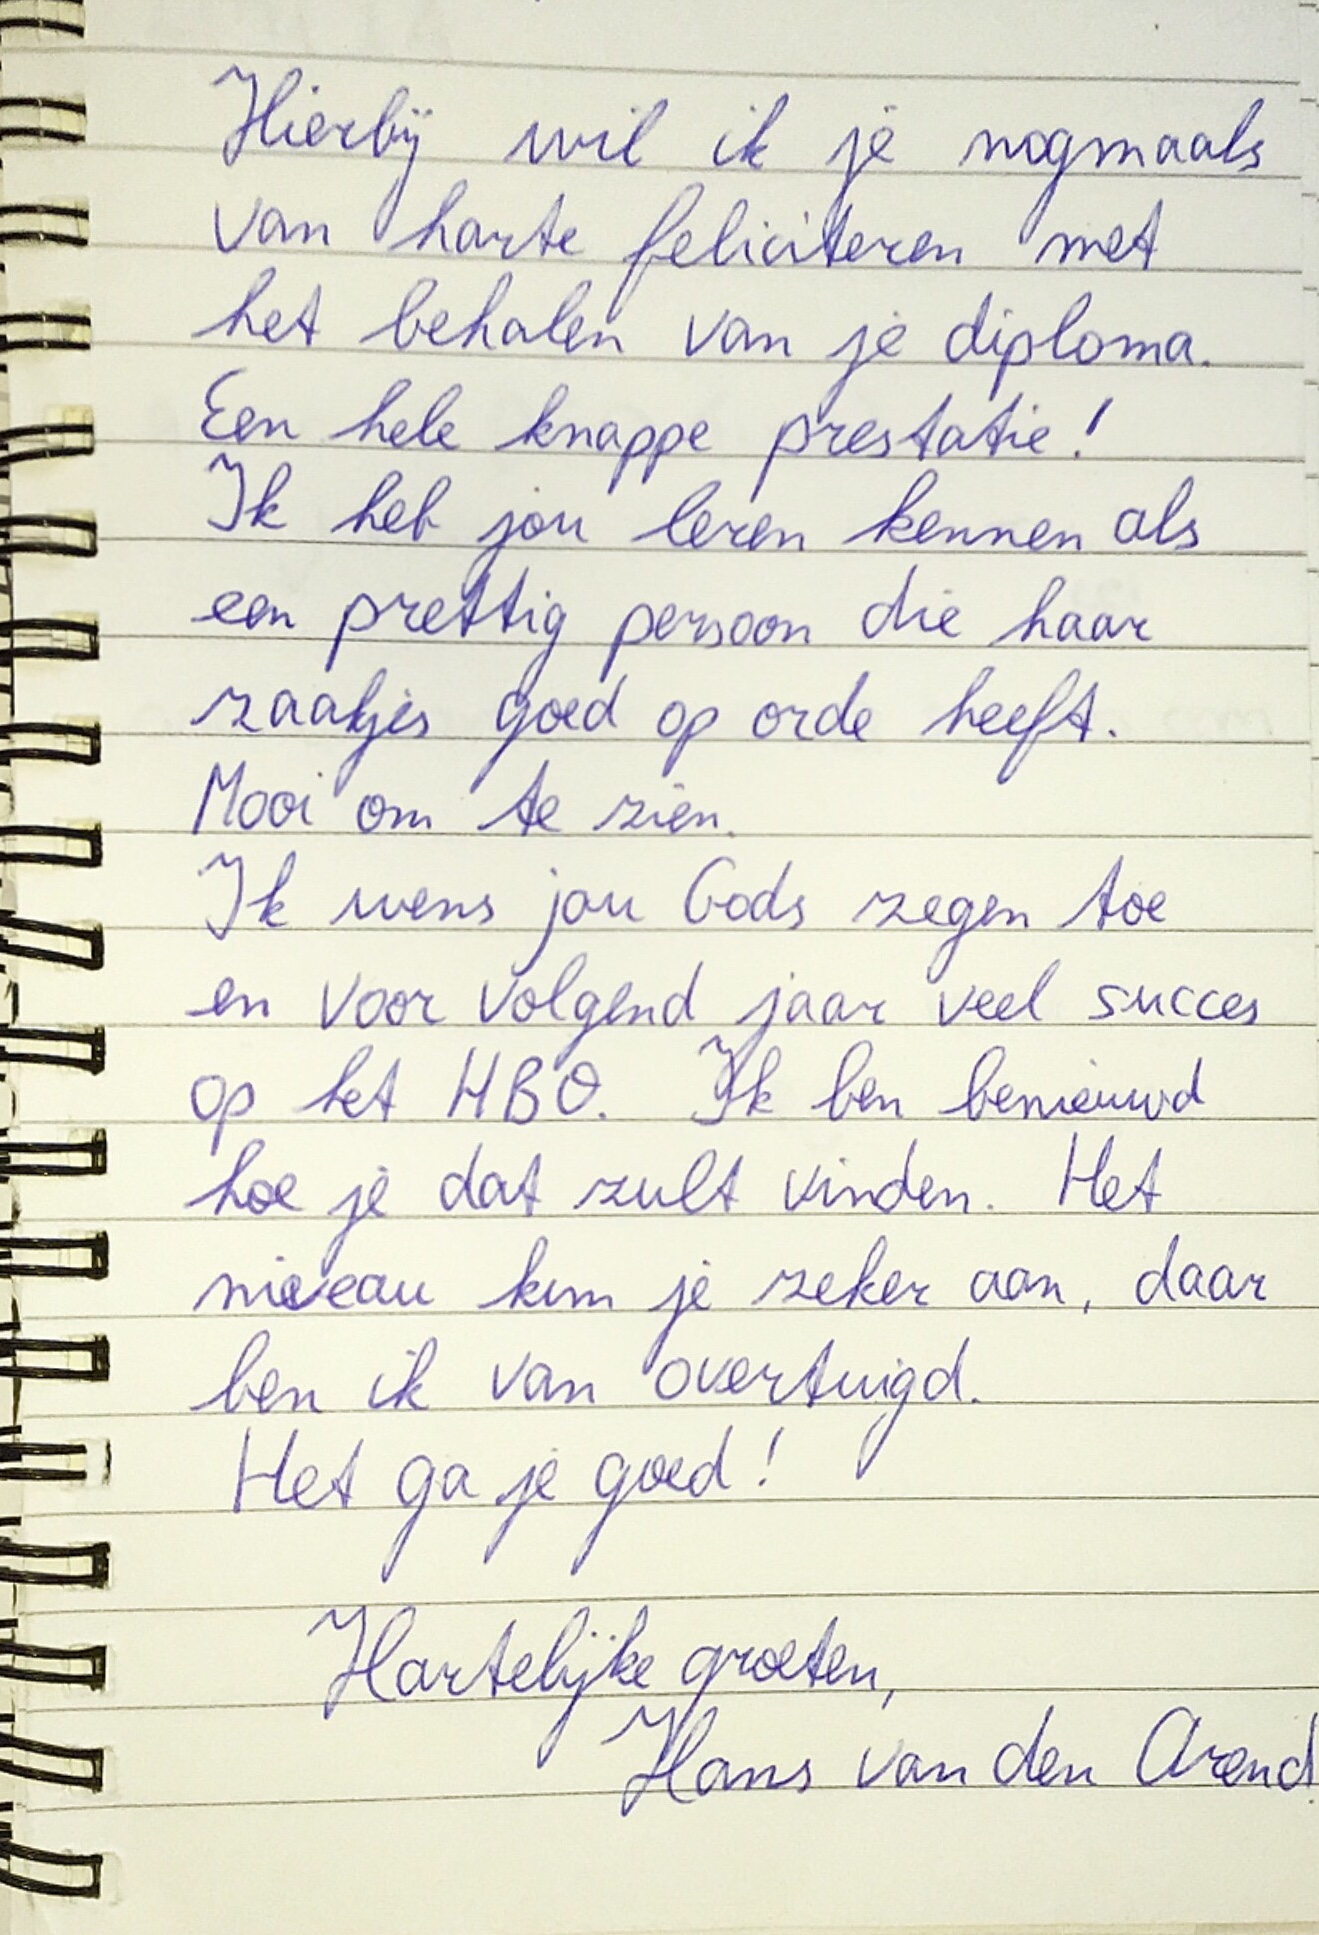 Hierbij wil ik je nogmaals
van harte feliciteren met
het behalen van je diploma.
Een hele knappe prestatie!
Ik heb jou leren kennen als
een prettig persoon die haar
zaakjes goed op orde heeft.
Mooi om te zien.
Ik wens jou Gods zegen toe
en voor volgend jaar veel succes
op het HBO. Ik ben benieuwd
hoe je dat zult vinden. Het
niveau kun je zeker aan, daar
ben ik van overtuigd.
Het ga je goed!
Hartelijke groeten,
Hans van den Arend